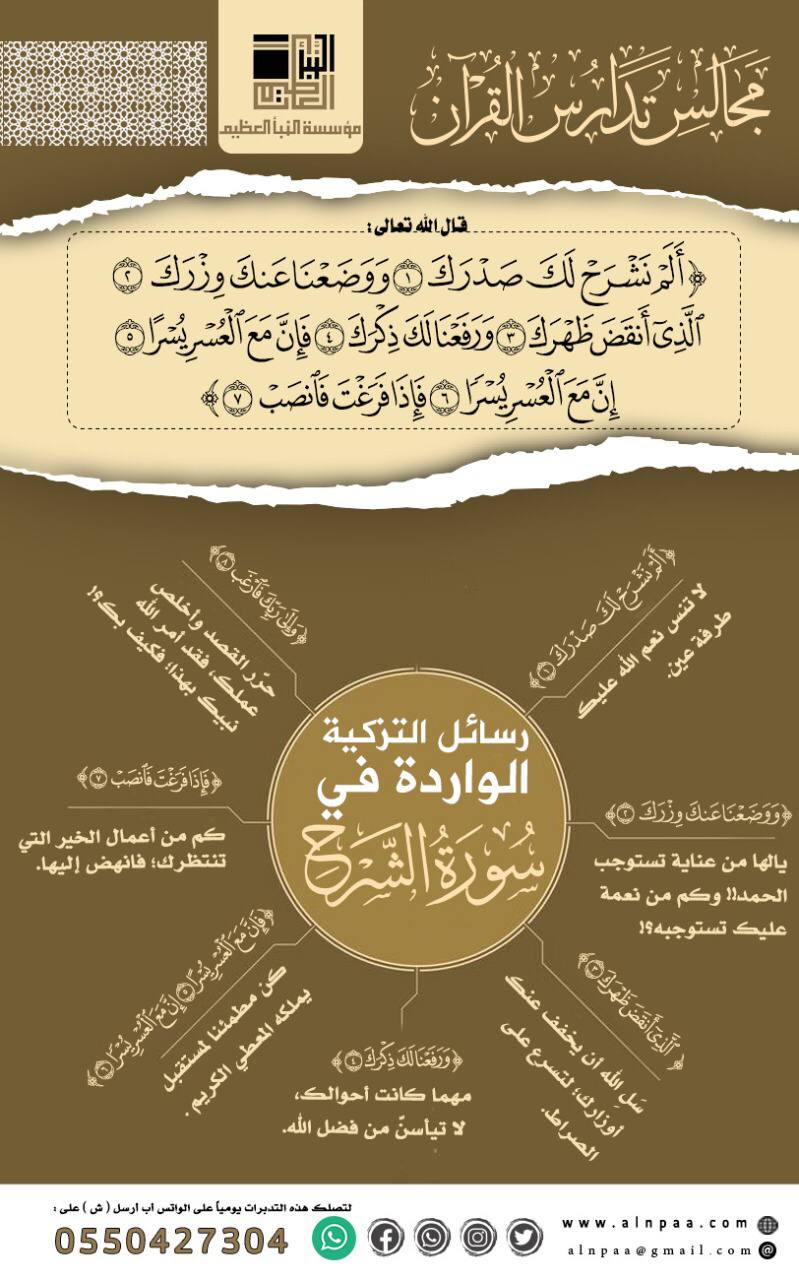 مَجَالِس تَدَارُس القُرْآن
النبأ العظيم
مؤسسة النبأ العظيم
قال الله تعالى:
﴿أَلَمْ نَشْرَحْ لَكَ صَدْرَكَ ١ وَوَضَعْنَا عَنكَ وِزْرَكَ ٢
ٱلَّذِىٓ أَنقَضَ ظَهْرَكَ ٣ وَرَفَعْنَا لَكَ ذِكْرَكَ ٤ فَإِنَّ مَعَ ٱلْعُسْرِ يُسْرًا ٥
إِنَّ مَعَ ٱلْعُسْرِ يُسْرًا ٦ فَإِذَا فَرَغْتَ فَٱنصَبْ ٧﴾
رسائل التزكية
الواردة في
سُورَةُ الشَّرْحِ
﴿أَلَمْ نَشْرَحْ لَكَ صَدْرَكَ ١﴾
لا تنس نعم الله عليك
طرفة عين.
﴿وَوَضَعْنَا عَنكَ وِزْرَكَ ٢﴾
يالها من عناية تستوجب
الحمد!! وكم من نعمة
عليك تستوجبه؟!
﴿ٱلَّذِىٓ أَنقَضَ ظَهْرَكَ ٣﴾
سَلِ الله أن يخفف عنك
أوزارك؛ لتسرع على
الصراط.
﴿وَرَفَعْنَا لَكَ ذِكْرَكَ ٤﴾
مهما كانت أحوالك،
لا تيأسنّ من فضل الله.
﴿فَإِنَّ مَعَ ٱلْعُسْرِ يُسْرًا ٥ إِنَّ مَعَ ٱلْعُسْرِ يُسْرًا ٦﴾
كن مطمئنا لمستقبل
يملكه المعطي الكريم .
﴿فَإِذَا فَرَغْتَ فَٱنصَبْ ٧﴾
كم من أعمال الخير التي
تنتظرك؛ فانهض إليها.
﴿وَإِلَىٰ رَبِّكَ فَٱرْغَب ٨﴾
حرّر القصد وأخلص
عملك، فقد أمر الله
نبيك بهذا؛ فكيف بك؟!
لتصلك هذه التدبرات يومياً على الواتس أب أرسل ( ش ) على :
0550427304
www.alnpaa.com
alnpaa@gmail.com